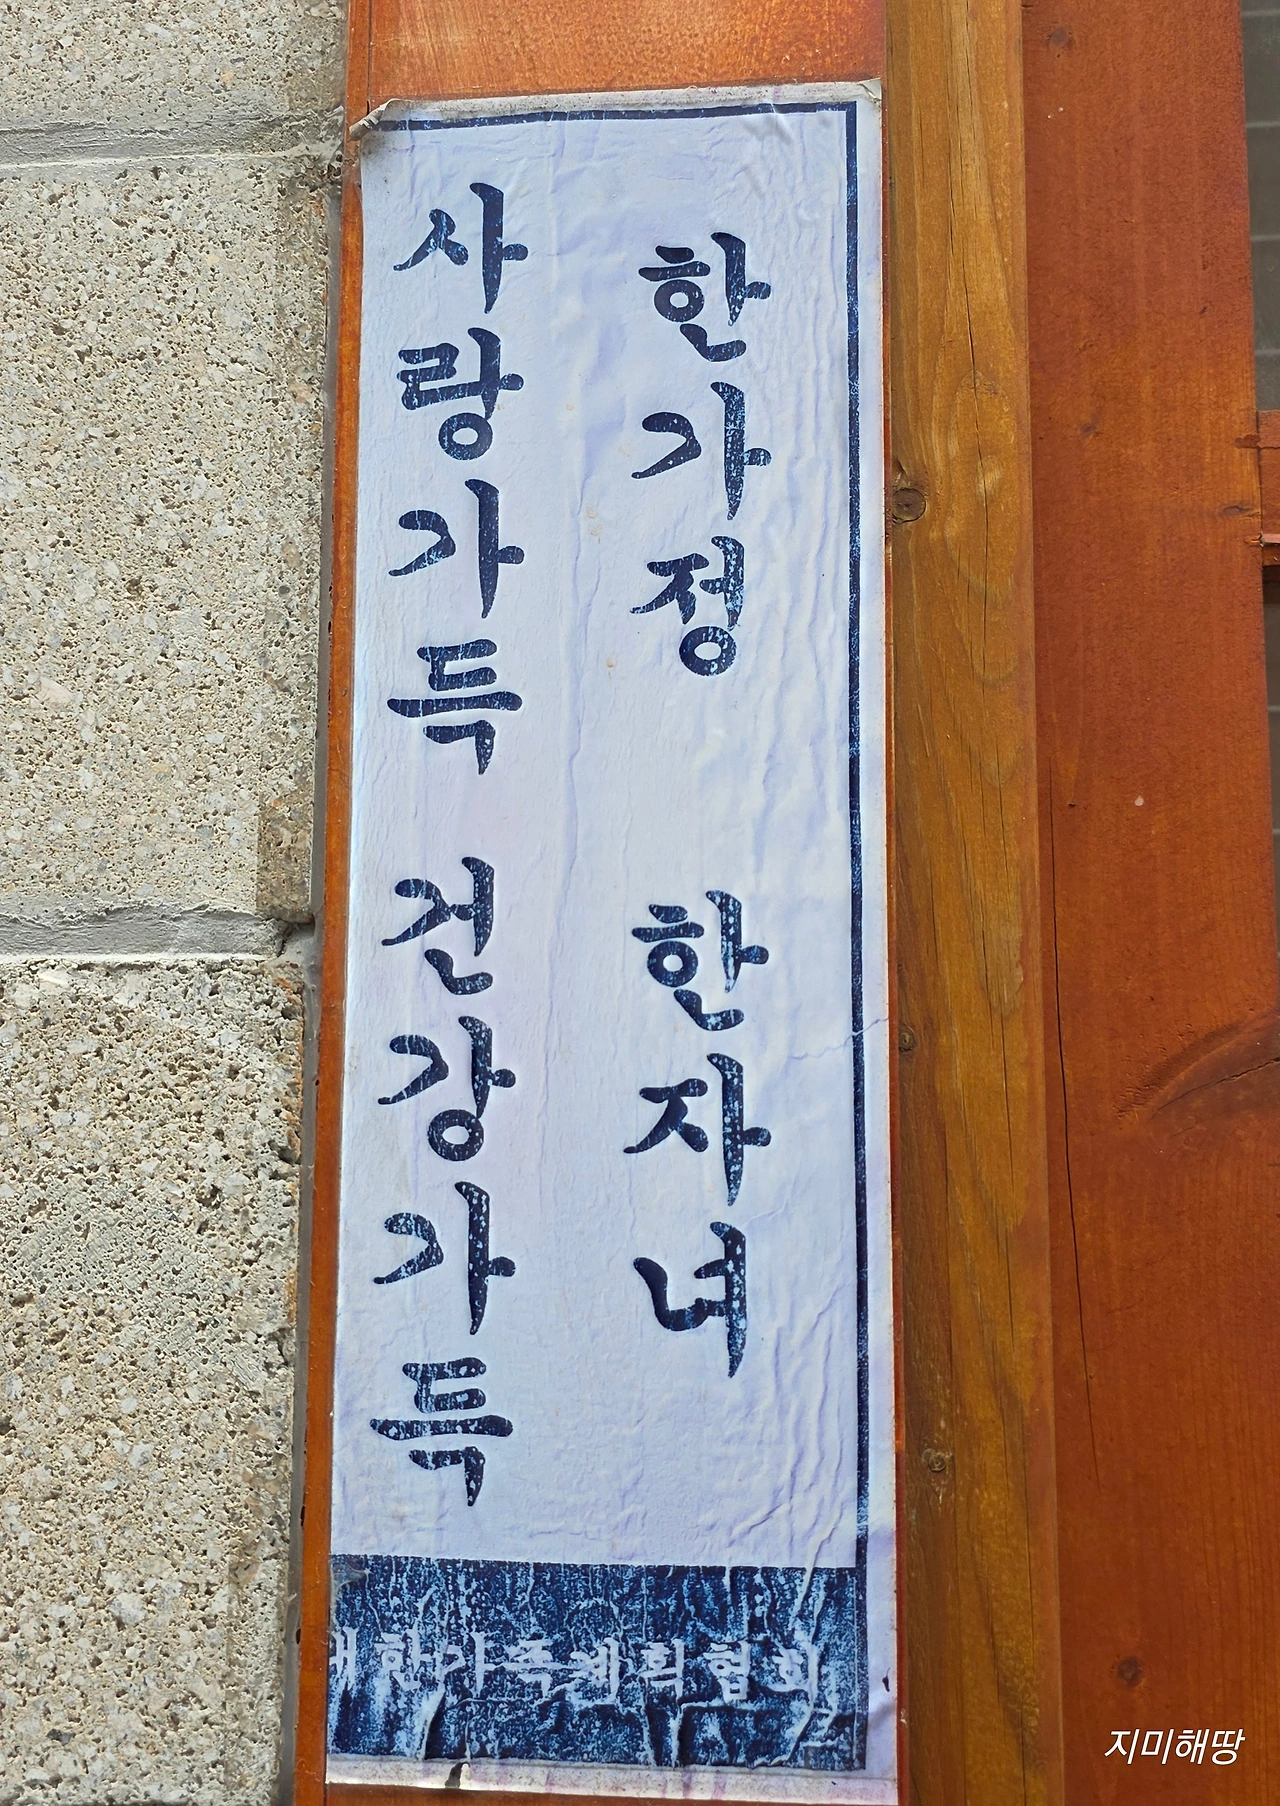 한가정 한자녀
사랑가득 건강가득
대한가족계획협회
지미해땅